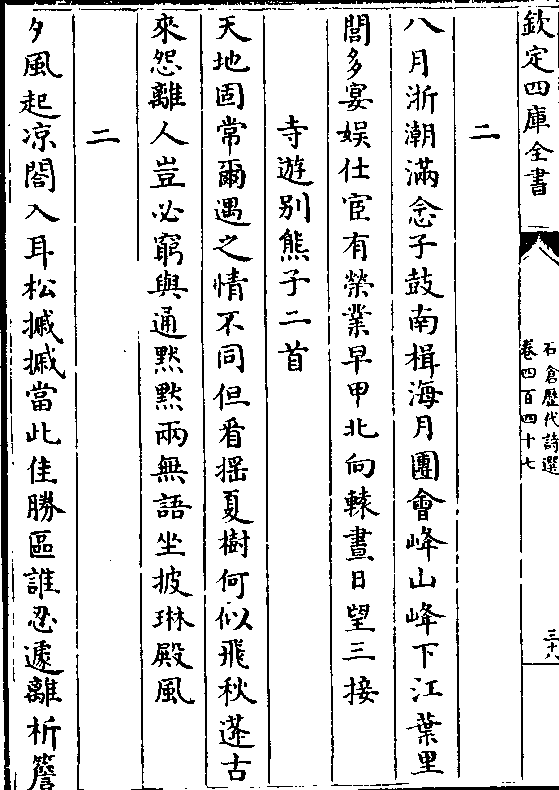 欽定四庫全書
石倉歷代詩選
卷四百四十七
三十八
二
八月浙潮滿念子鼓南楫海月團會峰山峰下江葉里
閭多宴娱仕宦有榮業早甲北向轅晝日望三接
寺遊别熊子二首
天地固常爾遇之情不同但看揺夏樹何似飛秋蓬古
來怨離人豈必窮與通黙黙兩無語坐披琳殿風
二
夕風起凉閣入耳松摵摵當此佳勝區誰忍遽離析簷